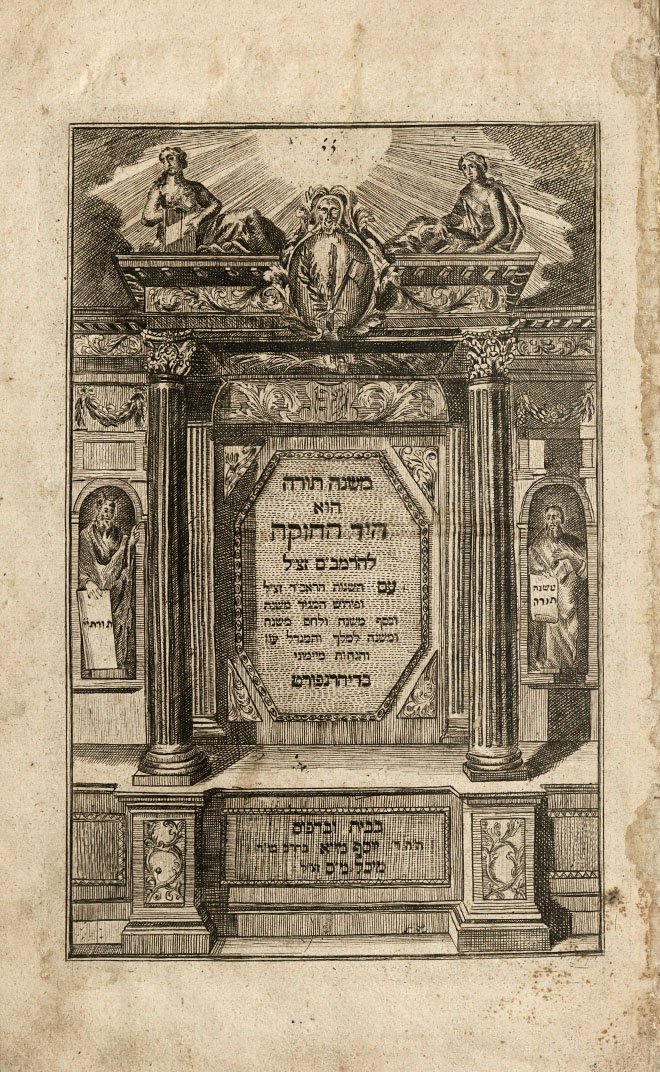 יי
משנה תורה
הוא
היד החזקה
להרמב״ם זצ״ל
עם השגות הראב״ד זצ״ל
ופירוש המגיד משנה
וכסף משנה ולחם משנה
ומשנה למלך והמגדל עוז
והגהות מיימוני
בדיהרנפורט
תורת
משנה
תורה
בבית ובדפוס
יוסף מייא
מיכל מייס זצ״ל